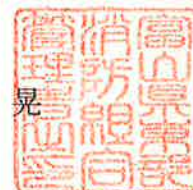 富山県東部
消防組合
管理者之印
晃